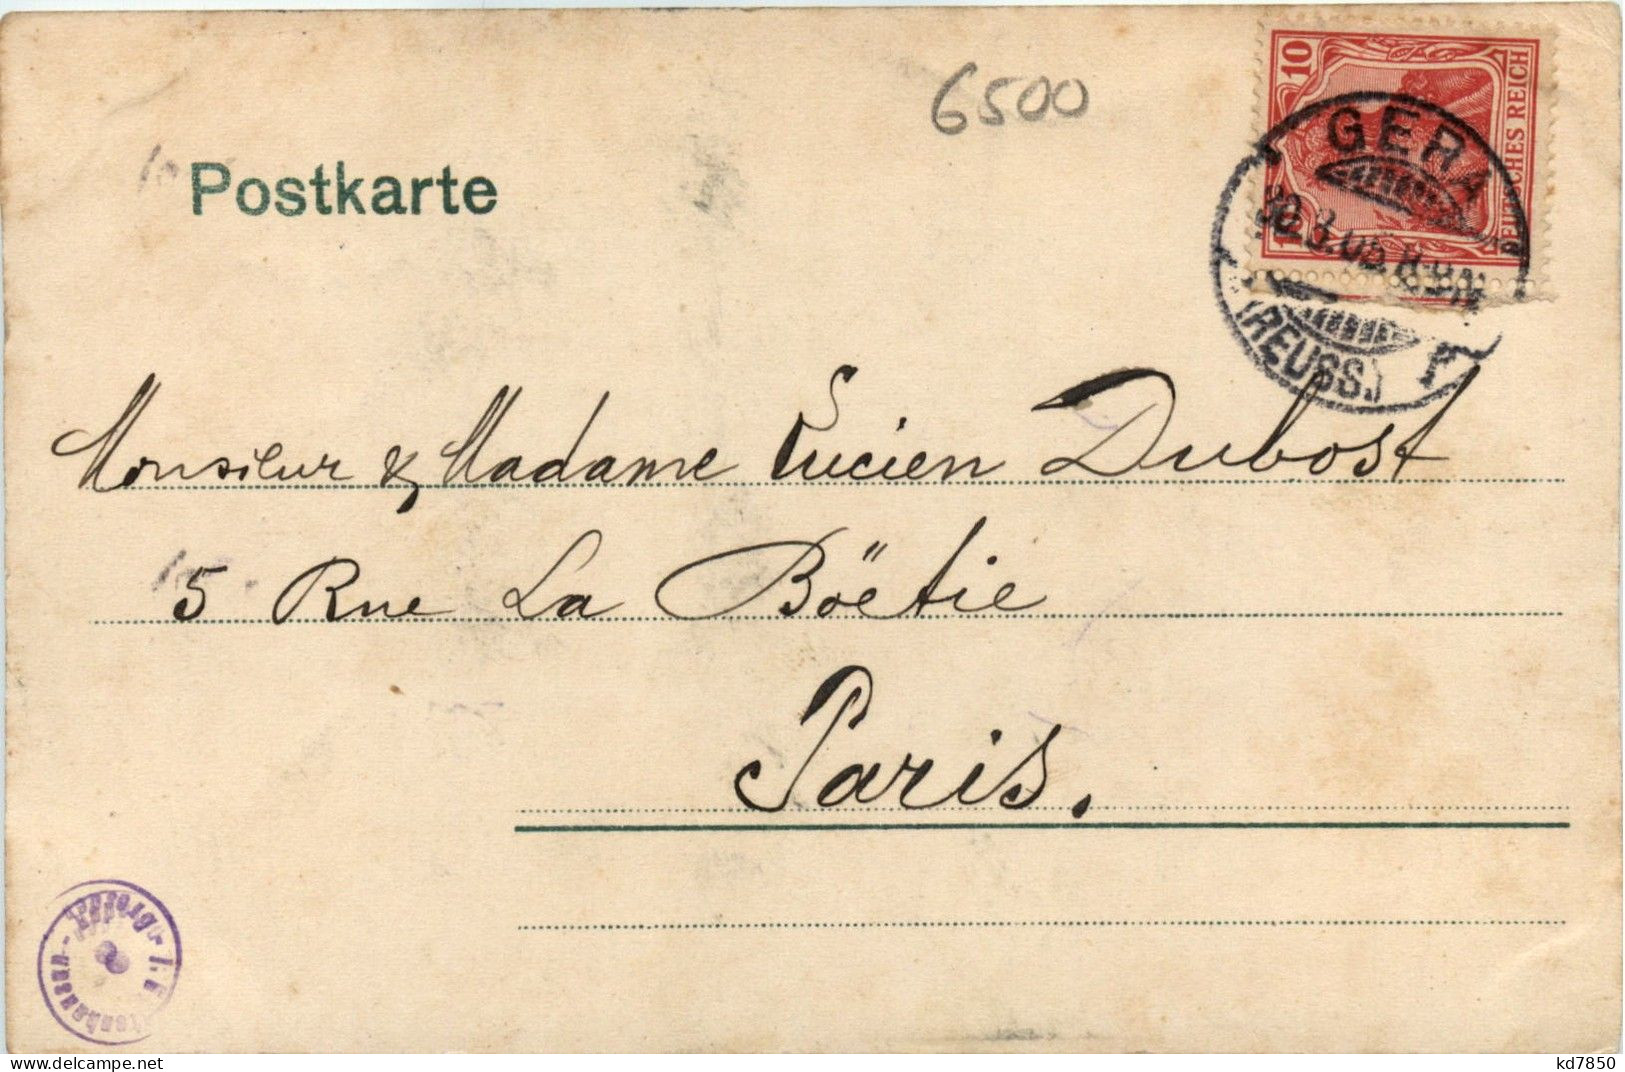 6500
Postkarte
10
DEUTSCHES REICH
GERA
30.3.05.8-9N
(REUSS.)
Monsieur & Madame Lucien Dubost
5 Rue La Böëtie
Paris.
delcampe.net
kd7850